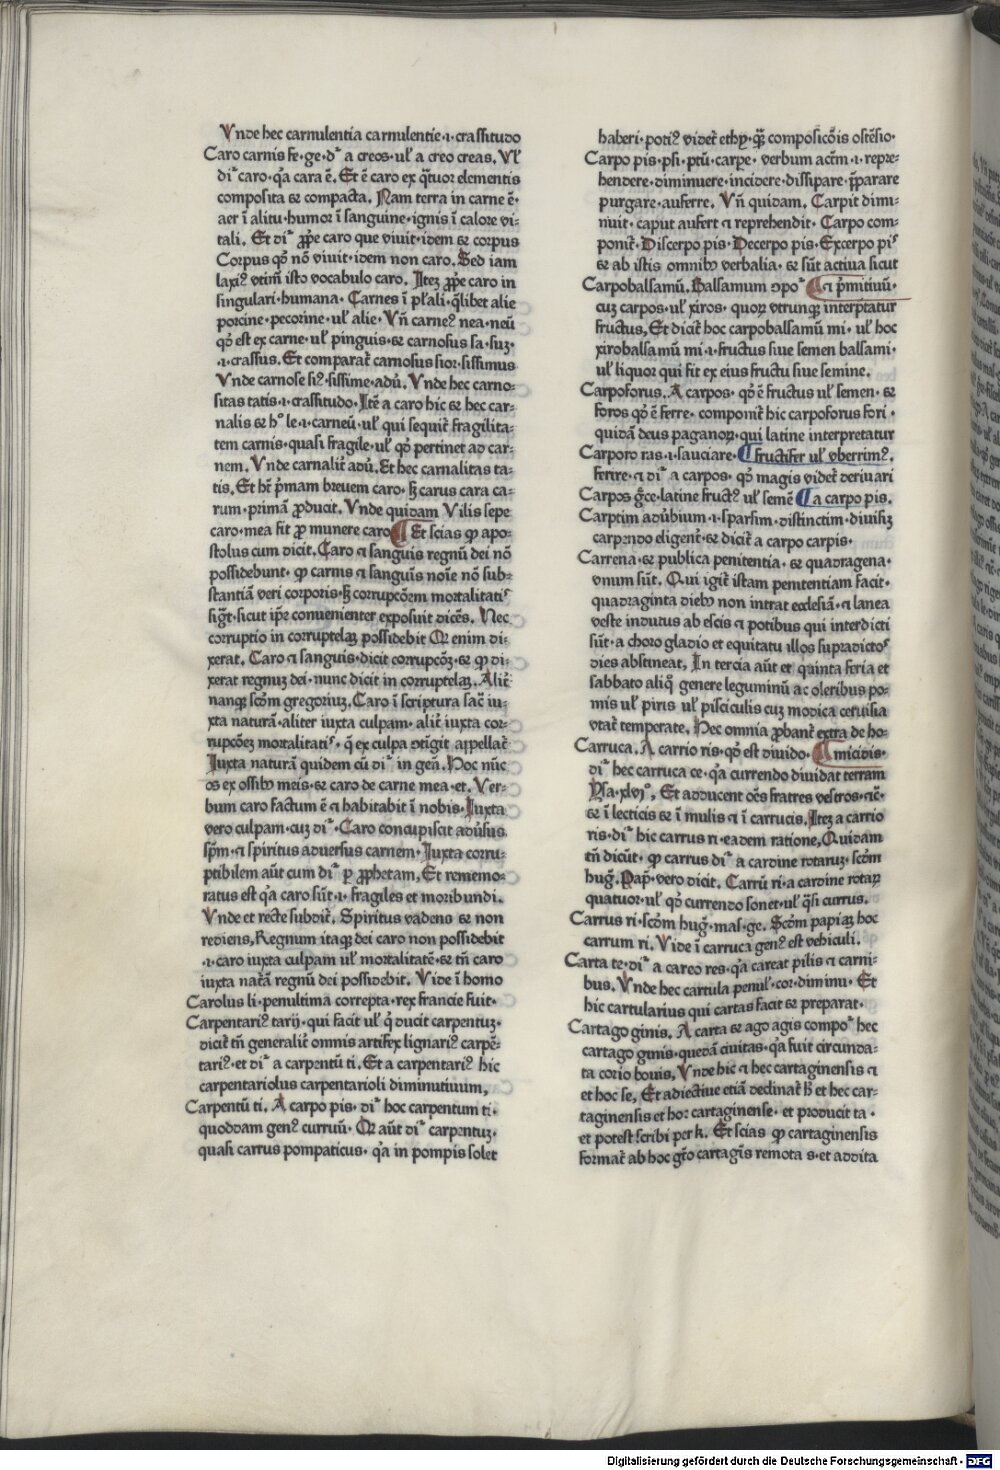 Vnde hec carnulentia carnulentie·i·crassitudo
Caro carnis fe·ge·dr̄ a creos·ul' a creo creas. Vl'
dr̄ caro·q̄a cara ē. Et ē caro ex q̄tuor elementis
composita ⁊ compacta. Nam terra in carne ē·
aer ī alitu·humor ī sanguine·ignis ī calore vi-
tali. Et dr̄ ꝓp̄e caro que viuit·idem ⁊ corpus
Corpus qō nō viuit·idem non caro. Sed iam
laxi⁹ vtim̄ isto vocabulo caro. Itez ꝓp̄e caro in
singulari·humana. Carnes ī pl'ali·q̄libet alie
porcine·pecorine·ul' alie. Vn̄ carne⁹ nea·neū
qō est ex carne·ul' pinguis·⁊ carnosus sa·suz·
·i·crassus. Et comparat̄ carnosus sior·sissimus
Vnde carnose si⁹·sissime·adū. Vnde hec carno-
sitas tatis·i·crassitudo·Itē a caro hic ⁊ hec car-
nalis ⁊ hº le·i·carneū·ul' qui sequit̄ fragilita-
tem carnis·quasi fragile·ul' qō pertinet ad car-
nem. Vnde carnalit̄ adū. Et hec carnalitas ta-
tis. Et hr̄ p̄mam breuem caro·sꝫ carus cara ca-
rum·primā ꝓducit. Vnde quidam Vilis sepe
caro·mea fit ꝓ munere caro ¶ Et scias ꝙ apo-
stolus cum dicit. Caro ⁊ sanguis regnū dei nō
possidebunt·ꝙ carnis ⁊ sanguīs noīe nō sub-
stantiā veri corporis·sꝫ corrupcōem mortalitatis
sigt̄·sicut ip̄e conuenienter exposuit dicēs. Nec
corruptio in corruptelaꝫ possidebit Qꝛ enim di-
xerat. Caro ⁊ sanguis·dicit corrupcōꝫ·⁊ ꝙ di-
xerat regnuꝫ dei·nunc dicit in corruptelaꝫ. Alit̄
nanqꝫ scd̄m gregoriuꝫ. Caro ī scriptura sac̄ iu-
xta naturā·aliter iuxta culpam·alit̄ iuxta cor-
rupcōeꝫ mortalitatis·q̄ ex culpa ↄtigit appellat̄
Iuxta naturā quidem cū dr̄ in gen̄. Hoc nūc
os ex ossibꝫ meis·⁊ caro de carne mea·et. Ver-
bum caro factum ē ⁊ habitabit ī nobis·Iuxta
vero culpam·cuꝫ dr̄·Caro concupiscit aduersus
sp̄m·⁊ spiritus aduersus carnem·Iuxta corru-
ptibilem aūt cum dr̄ ꝑ ꝓphetam, Et rememo-
ratus est q̄a caro sūt·i·fragiles et moribundi.
Vnde et recte subdit̄. Spiritus vadens ⁊ non
rediens, Regnum itaqꝫ dei caro non possidebit
·i·caro iuxta culpam ul' mortalitatē·⁊ tn̄ caro
iuxta nat̄ā regnū dei possidebit. Vide ī homo
Carolus li·penultima correpta·rex francie fuit·
Carpentari⁹ tarij·qui facit ul' q̄ ducit carpentuꝫ·
dicit̄ tn̄ generalit̄ omnis artifex lignari⁹ carpē-
tari⁹·et dr̄ a carpentū ti. Et a carpentari⁹ hic
carpentariolus carpentarioli diminutiuum,
Carpentū ti. A carpo pis·dr̄ hoc carpentum ti·
quoddam gen⁹ curruū·Qꝛ aūt dr̄ carpentuꝫ·
quasi carrus pompaticus·q̄a in pompis solet
haberi·poti⁹ videt̄ ethy·qꝫ composicōis ostēsio·
Carpo pis·psi·ptū·carpe·verbum actm̄·i·repre-
hendere·diminuere·incidere·dissipare·p̄parare
purgare·auferre. Vn̄ quidam. Carpit dimi-
nuit·caput aufert ⁊ reprehendit·Carpo com-
ponit̄·Discerpo pis·Decerpo pis·Excerpo pis
⁊ ab istis omnibꝫ verbalia·⁊ sūt actiua sicut
Carpobalsamū. Balsamum ↄpor̄ ¶ ⁊ p̄mitiuū·
cuꝫ carpos·ul' xiros·quoꝝ vtrunqꝫ interp̄tatur
fructus, Et dicit̄ hoc carpobalsamū mi·ul' hoc
xirobalsamū mi·i·fructus siue semen balsami·
ul' liquor qui fit ex eius fructu siue semine.
Carpoforus. A carpos·qō ē fructus ul' semen·⁊
foros qō ē ferre·componit̄ hic carpoforus fori·
quidā deus paganoꝝ·qui latine interpretatur
Carporo ras·i·sauciare·¶ fructifer ul' vberrim⁹.
ferire·⁊ dr̄ a carpos·qō magis videt̄ deriuari
Carpos gr̄ce·latine fruct⁹ ul' semē ¶ a carpo pis.
Carptim aduerbium·i·sparsim·distinctim·diuisiꝫ
carpendo eligent̄·⁊ dicit̄ a carpo carpis·
Carrena·⁊ publica penitentia·⁊ quadragena·
vnum sūt. Qui igit̄ istam penitentiam facit·
quadraginta diebꝫ non intrat ecclesiā·⁊ lanea
veste indutus ab escis ⁊ potibus qui interdicti
sūt·a choro gladio et equitatu illos supradictos
dies abstineat, In tercia aūt et quinta feria et
sabbato aliq̄ genere leguminū ac oleribus po-
mis ul' piris ul' pisciculis cuꝫ modica ceruisia
vtat̄ temperate. Hec omnia ꝓbant̄ extra de ho-
Carruca. A carrio ris·qō est diuido·¶ micidis·
dr̄ hec carruca ce·q̄a currendo diuidat terram
Ysa·xlvjº, Et adducent oēs fratres vestros·⁊c̄·
⁊ ī lecticis ⁊ ī mulis ⁊ ī carrucis. Itez a carrio
ris·dr̄ hic carrus ri·eadem ratione, Quidam
tn̄ dicūt·ꝙ carrus dr̄ a cardine rotaruꝫ·scd̄m
huḡ. Pap̄·vero dicit. Carrū ri·a cardine rotaꝝ
quatuor·ul' qō currendo sonet·ul' q̄si currus.
Carrus ri·scd̄m huḡ·mas·ge. Scd̄m papiaꝫ hoc
carrum ri. Vide ī carruca gen⁹ est vehiculi.
Carta te·dr̄ a careo res·q̄a careat pilis ⁊ carni-
bus. Vnde hec cartula penul'·cor·diminu·Et
hic cartularius qui cartas facit ⁊ preparat·
Cartago ginis. A carta ⁊ ago agis compor̄ hec
cartago ginis·quedā ciuitas·q̄a fuit circunda-
ta corio bouis, Vnde hic ⁊ hec cartaginensis ⁊
et hoc se, Et adiectiue etiā declinat̄ h̄ et hec car-
taginensis et hoc cartaginense·et producit ta·
et potest scribi per k. Et scias ꝙ cartaginensis
format̄ ab hoc gtō cartagīs remota s·et addita
Digitalisierung gefördert durch die Deutsche Forschungsgemeinschaft · DFG